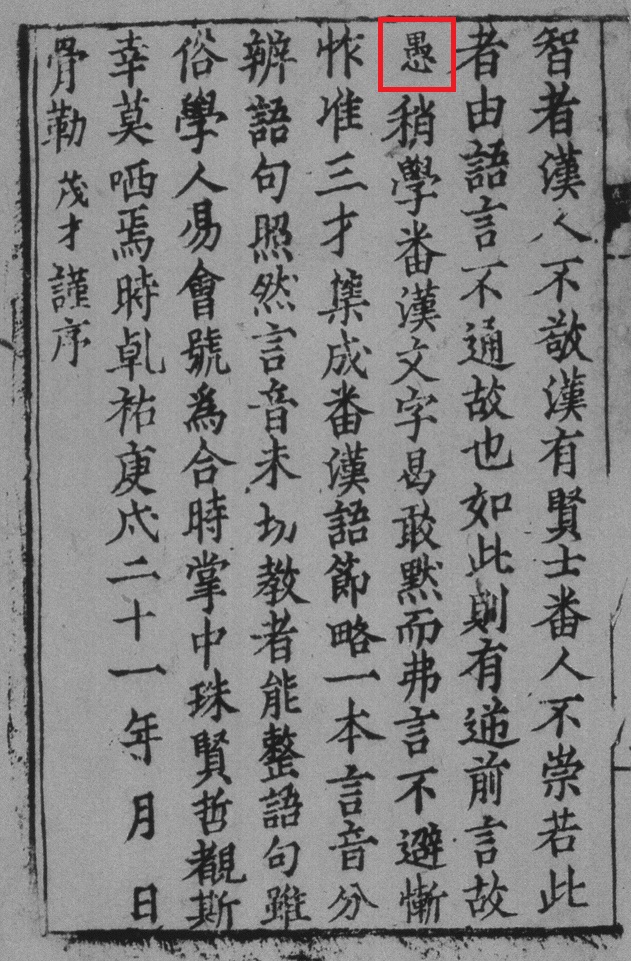 智者漢人不敬漢有賢士番人不崇若此
者由語言不通故也如此則有逆前言故
愚稍學番漢文字曷敢默而弗言不避慚
怍准三才集成番漢語節略一本言音分
辨語句照然言音未切教者能整語句雖
俗學人易會號爲合時掌中珠賢哲覩斯
幸莫哂焉時乹祐庚戌二十一年月日
骨勒茂才謹序